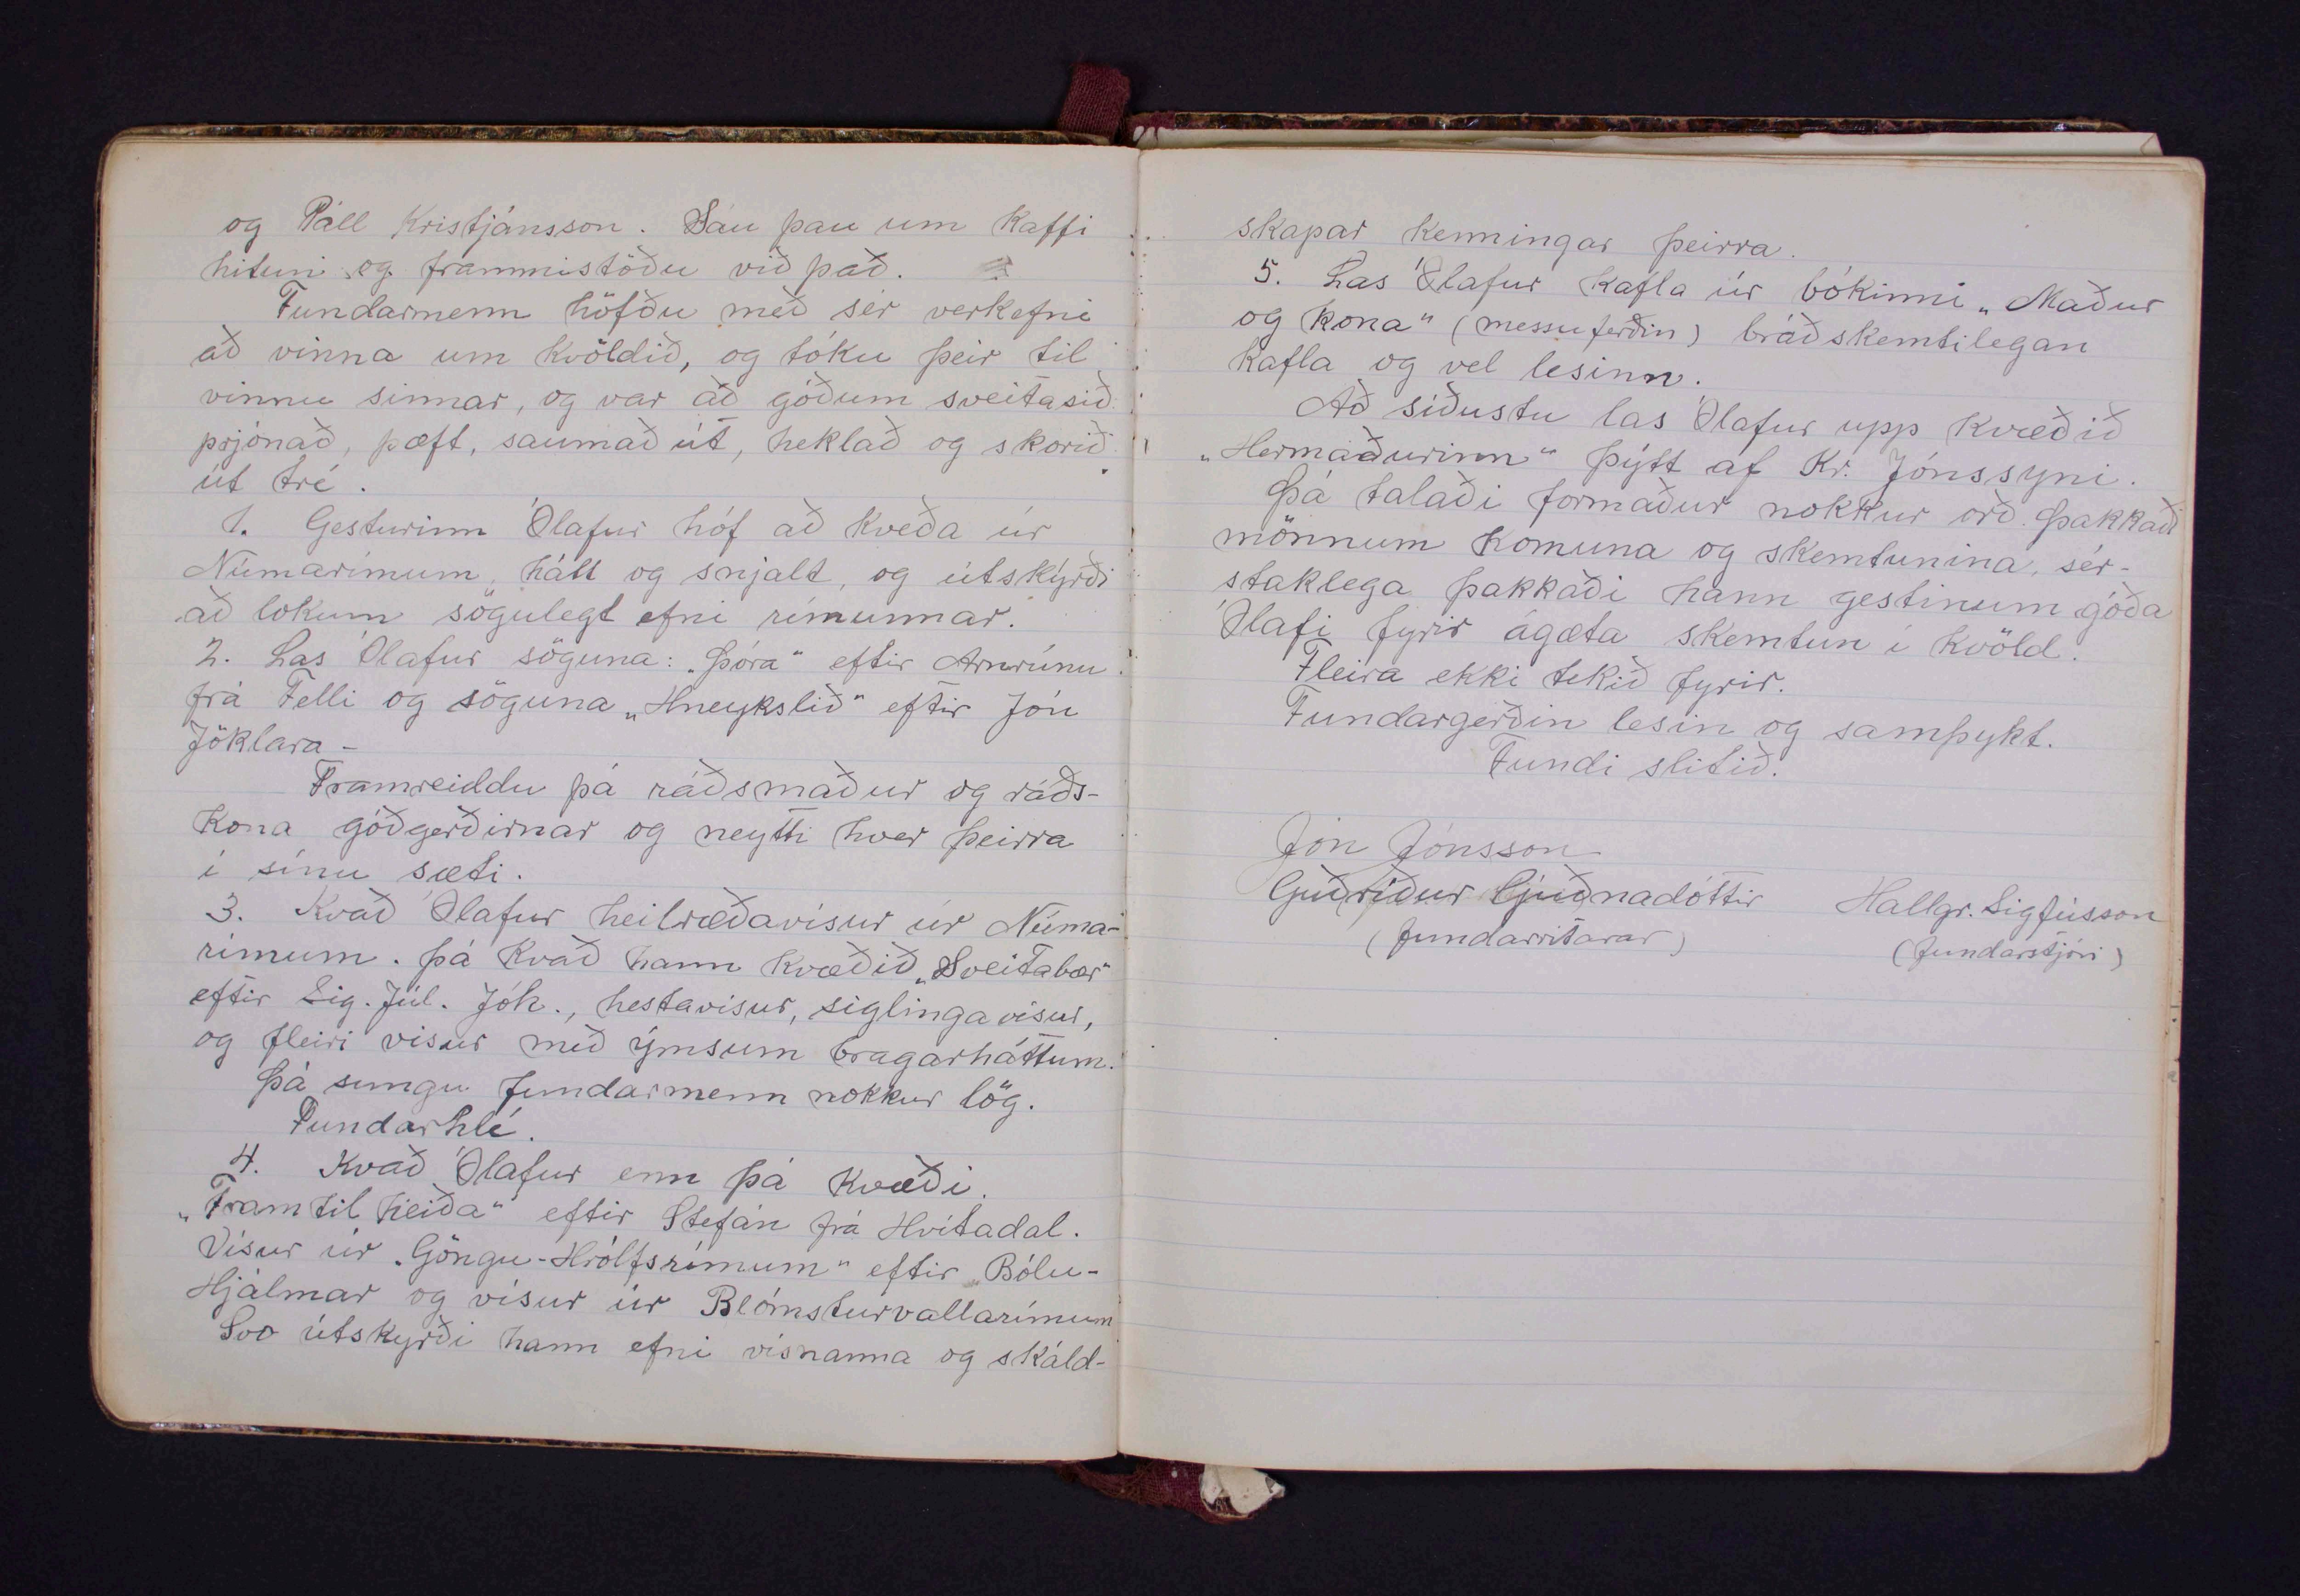 og Páll Kristjánsson. Sáu þau um kaffi
hitun og frammistöðu við það.
Fundarmenn höfðu með sér verkefni
að vinna um kvöldið, og tóku þeir til
vinnu sinnar, og var að góðum sveitasið
prjónað, þæft, saumað út, heklað og skorið
út tré.
1. Gesturinn Ólafur hóf að kveða úr
Númarímum, hátt og snjalt, og útskýrði
að lokum sögulegt efni rímunnar.
2. Las Ólafur söguna: „Þóra" eftir Arnrúnu
frá Felli og söguna „Hneykslið" eftir Jón
Jöklara -
Framreiddu þá ráðsmaður og ráðs-
kona góðgerðirnar og neytti hver þeirra
í sínu sæti.
3. Kvað Ólafur heilræðavísur úr Núma-
rímum. þá kvað hann kvæðið „Sveitabær"
eftir Sig. Júl. Jóh., hestavísur, siglingavísur,
og fleiri vísur með ýmsum bragarháttum.
Þá sungu fundarmenn nokkur lög.
Fundarhlé.
4. Kvað Ólafur enn þá kvæði.
„Fram til heiða" eftir Stefán frá Hvítadal.
Vísur úr „Göngu-Hrólfsrímum" eftir Bólu-
Hjálmar og vísur úr Blómsturvallarímum
Svo útskyrði hann efni vísnanna og skáld-
skapar kenningar þeirra.
5. Las Ólafur kafla úr bókinni „Maður
og kona" (messuferðin) bráðskemtilegan
kafla og vel lesinn.
Að síðustu las Ólafur upp kvæðið
„Hermaðurinn" þýtt af Kr. Jónssyni.
Þá talaði formaður nokkur orð. Þakkaði
mönnum komuna og skemtunina, sér-
staklega þakkaði hann gestinum góða
Ólafi fyrir ágæta skemtun í kvöld.
Fleira ekki tekið fyrir.
Fundargerðin lesin og samþykt.
Fundi slitið.
Jón Jónsson
Guðríður Guðnadóttir Hallgr. Sigfússon
(fundarritarar) (fundarstjóri)